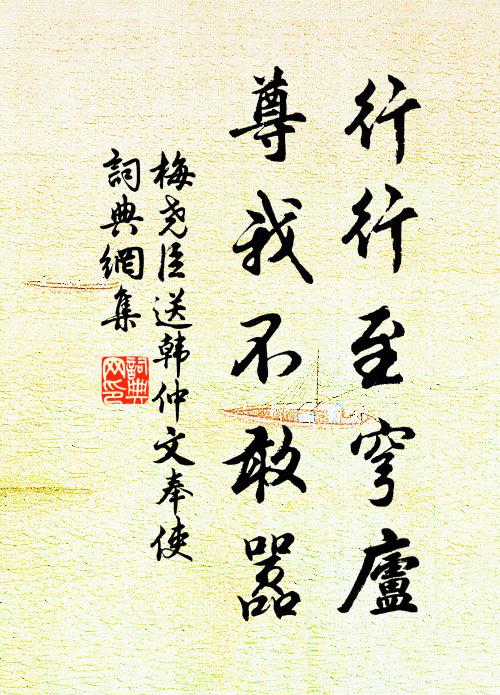 行行至穹廬
尊我不敢嚣
梅尧臣送韩仲文奉使
詞典網集
詞典网印